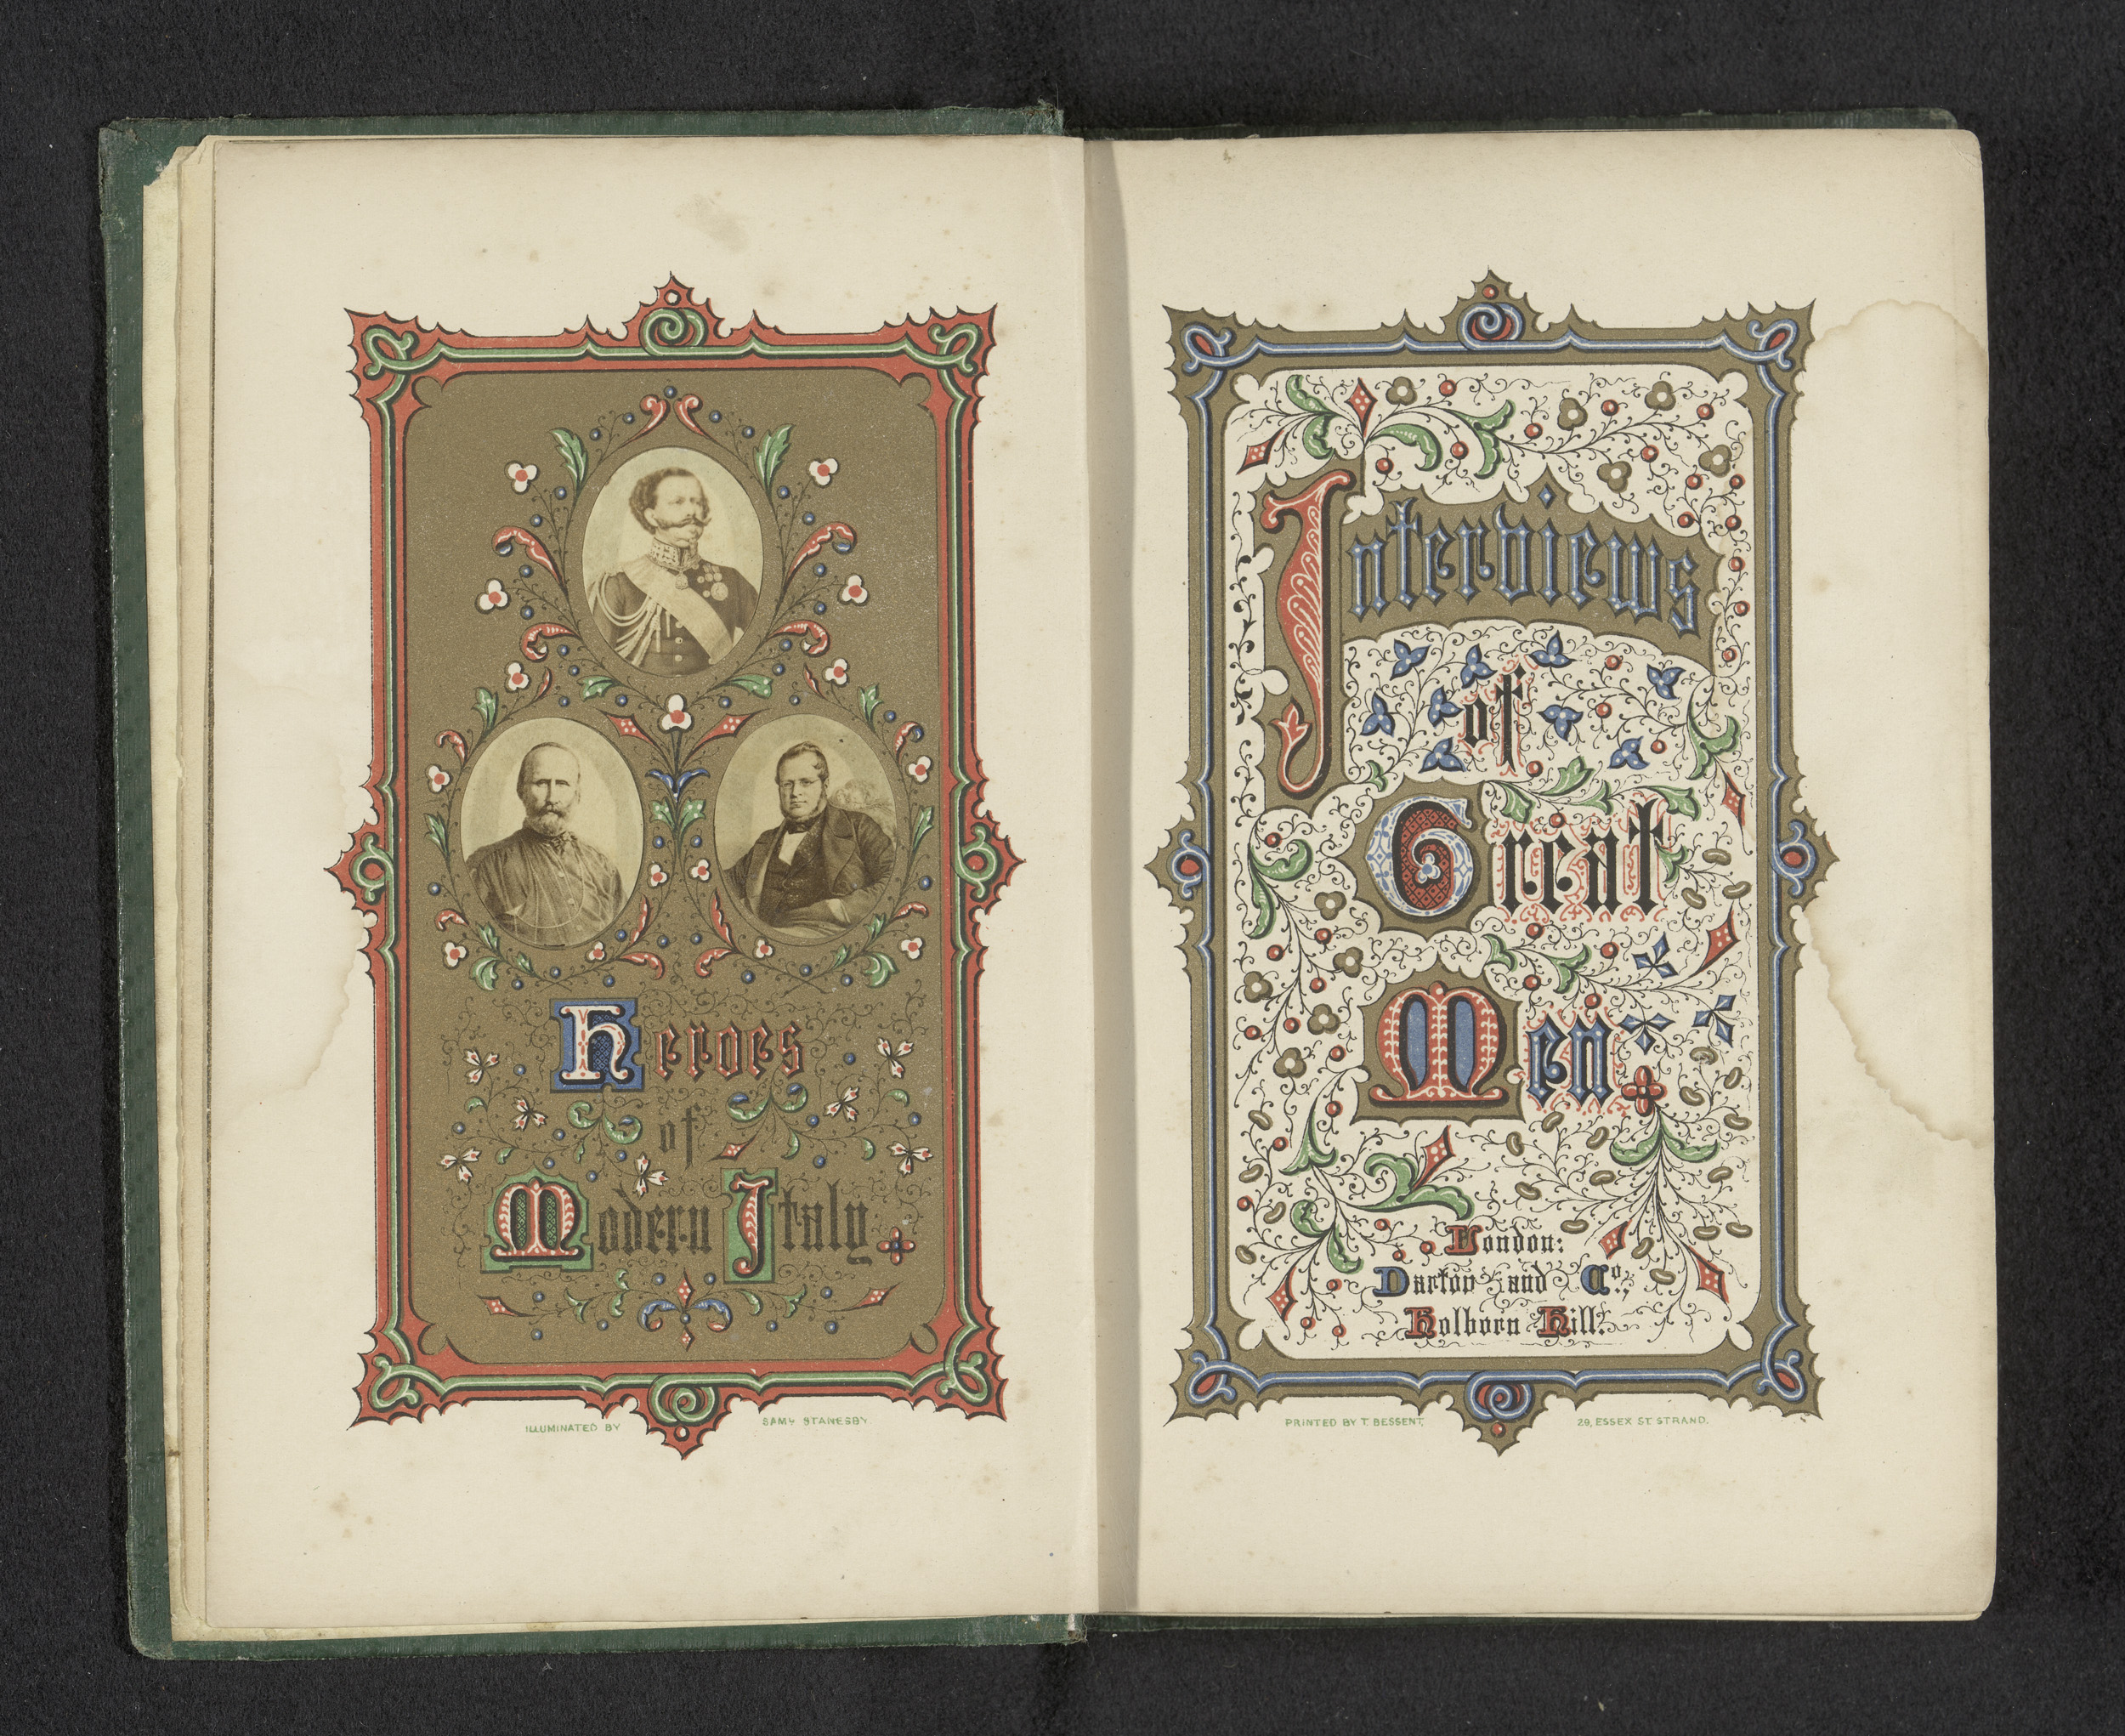 Heroes
of
Modern Italy
ILLUMINATED BY SAML STANESBY.
Interviews
of
Great
Men
London:
Darton and Co.,
Holborn Hill.
PRINTED BY T. BESSENT, 29, ESSEX ST STRAND.